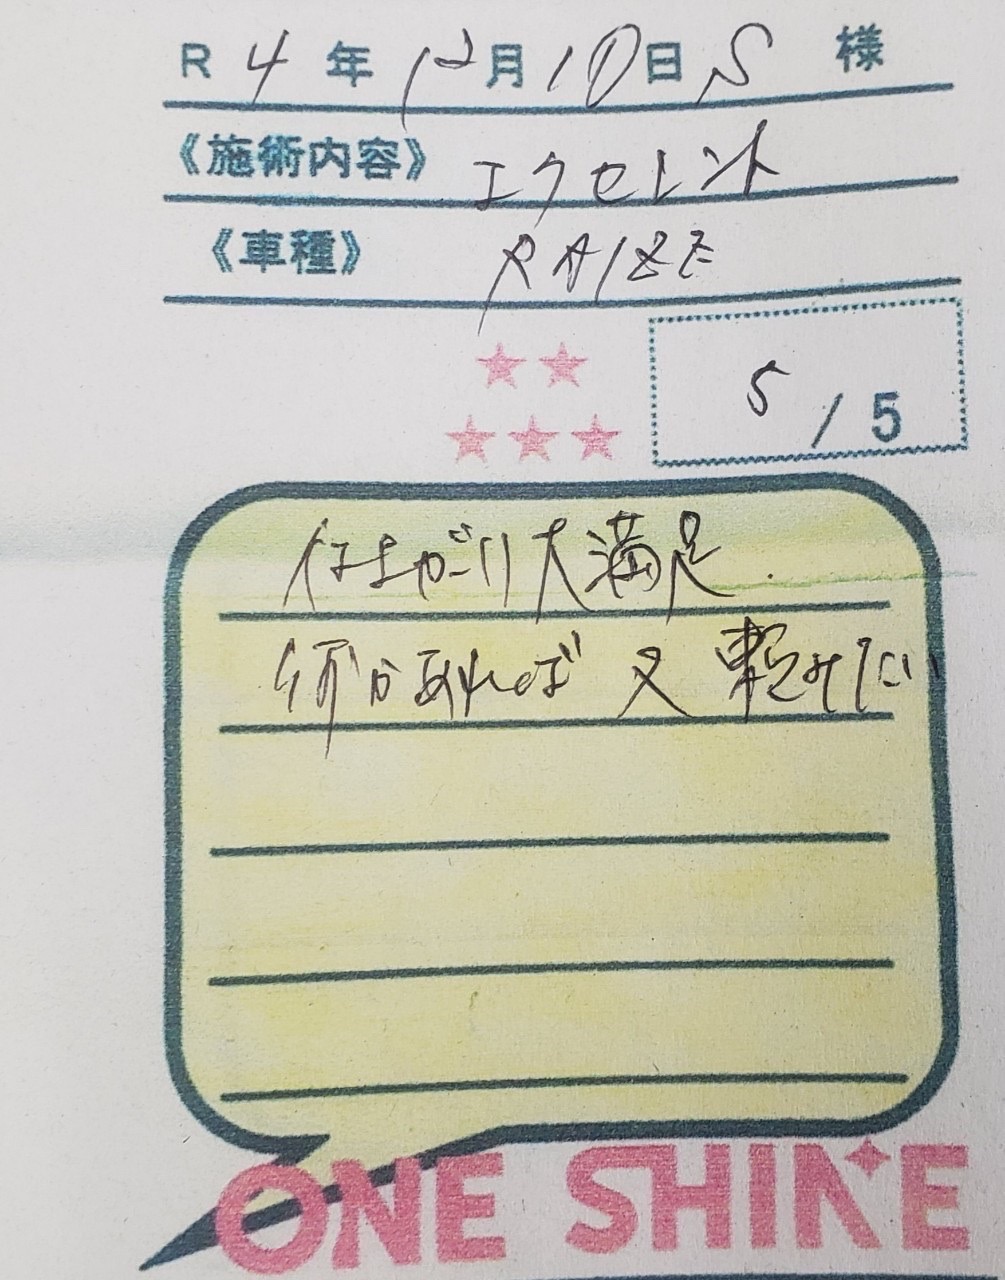 R 4 年 12月 10日 S 様
《施術内容》 エクセレント
《車種》 RAIZE
5 / 5
仕上がり大満足.
何かあれば 又 頼みたい
ONE SHINE